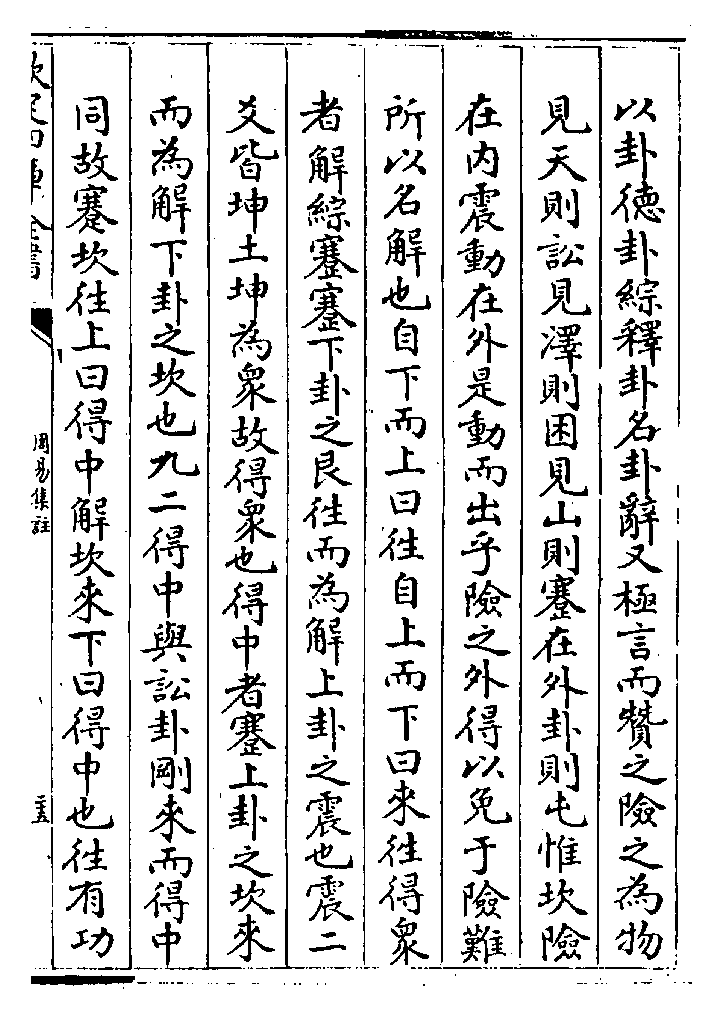 以卦徳卦綜釋卦名卦辭又極言而贊之險之為物
見天則訟見澤則困見山則蹇在外卦則屯惟坎險
在内震動在外是動而出乎險之外得以免于險難
所以名解也自下而上曰徃自上而下曰來徃得衆
者解綜蹇蹇下卦之艮徃而為解上卦之震也震二
爻皆坤土坤為衆故得衆也得中者蹇上卦之坎來
而為解下卦之坎也九二得中與訟卦剛來而得中
同故蹇坎徃上曰得中解坎來下曰得中也徃有功
欽定四庫全書
周易集註